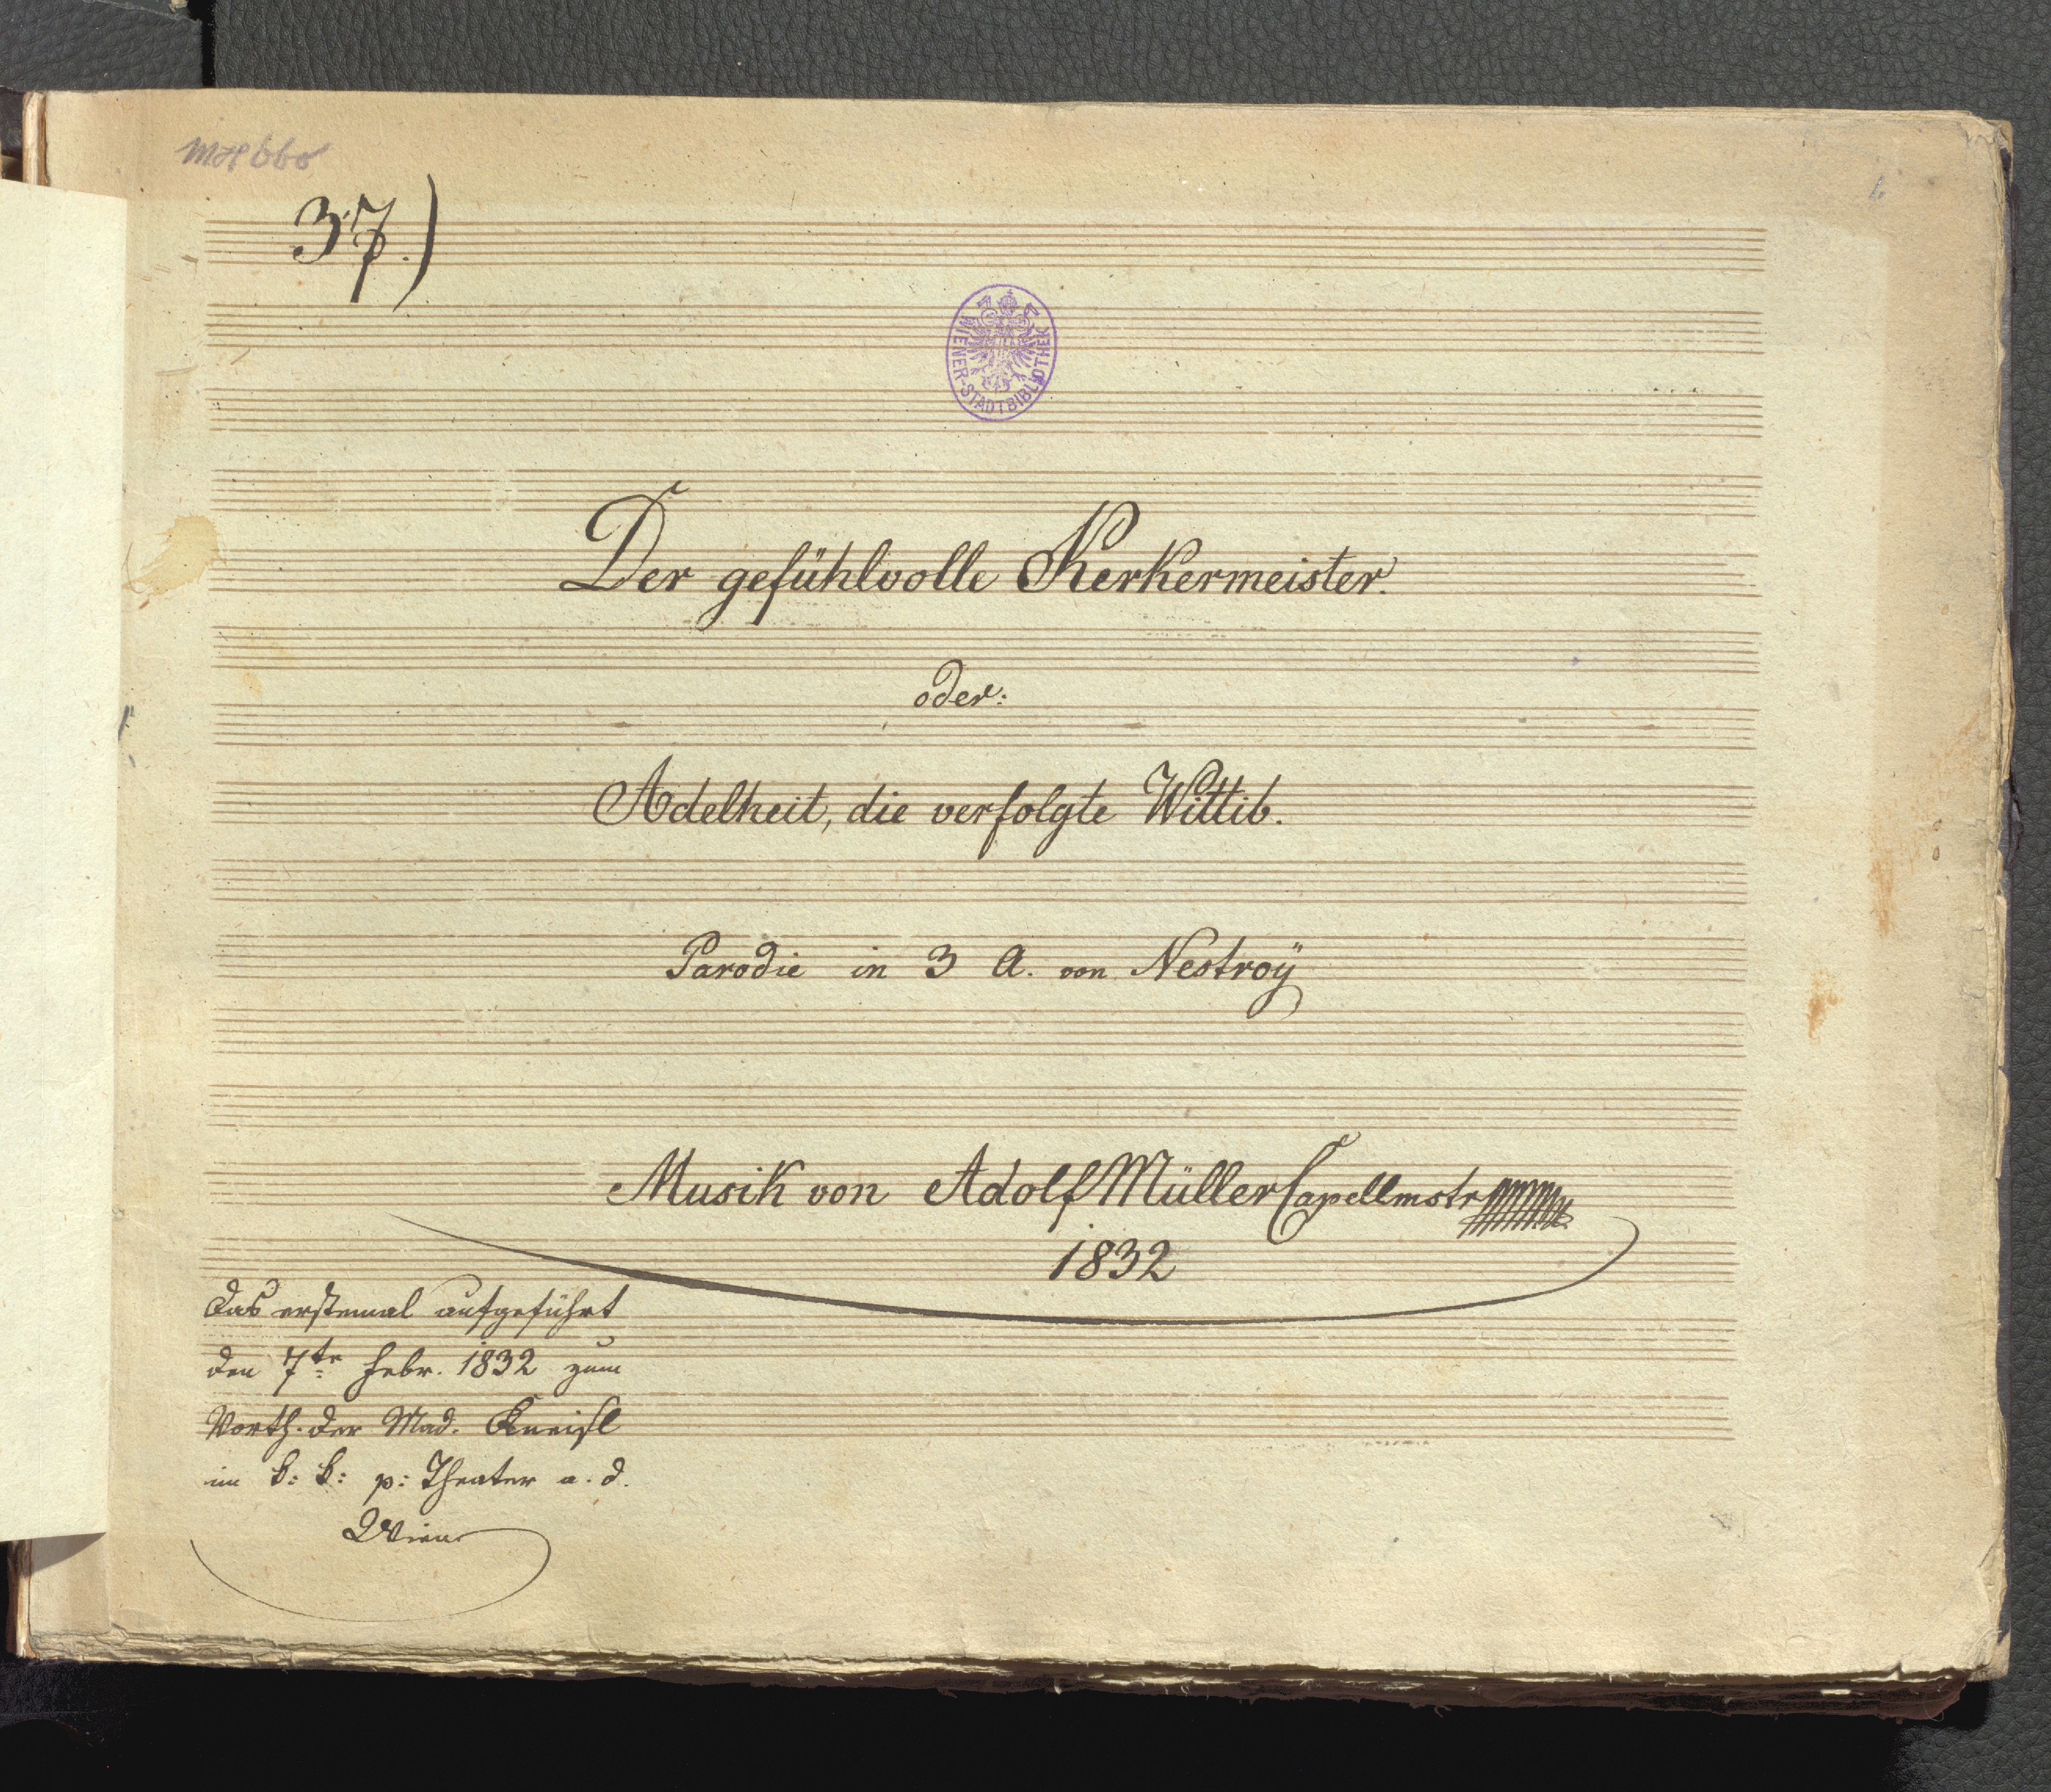 MH 660
37.)
WIENER-STADTBIBLIOTHEK
Der gefühlvolle Kerkermeister.
oder:
Adelheit, die verfolgte Wittib.
Parodie in 3 A. von Nestroÿ
Musik von Adolf Müller Capellmstr
1832
Das erstemal aufgeführt
den 7te Febr. 1832 zum
Vorth. der Mad. Kneisl
im k: k: p: Theater a. d.
Wien